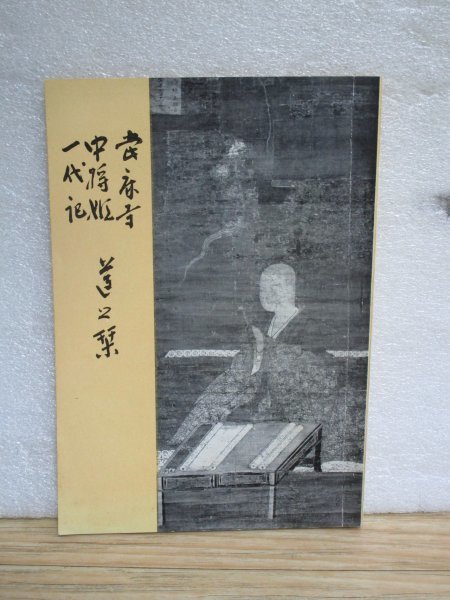 當麻寺
中将姫
一代記
蓮之栞